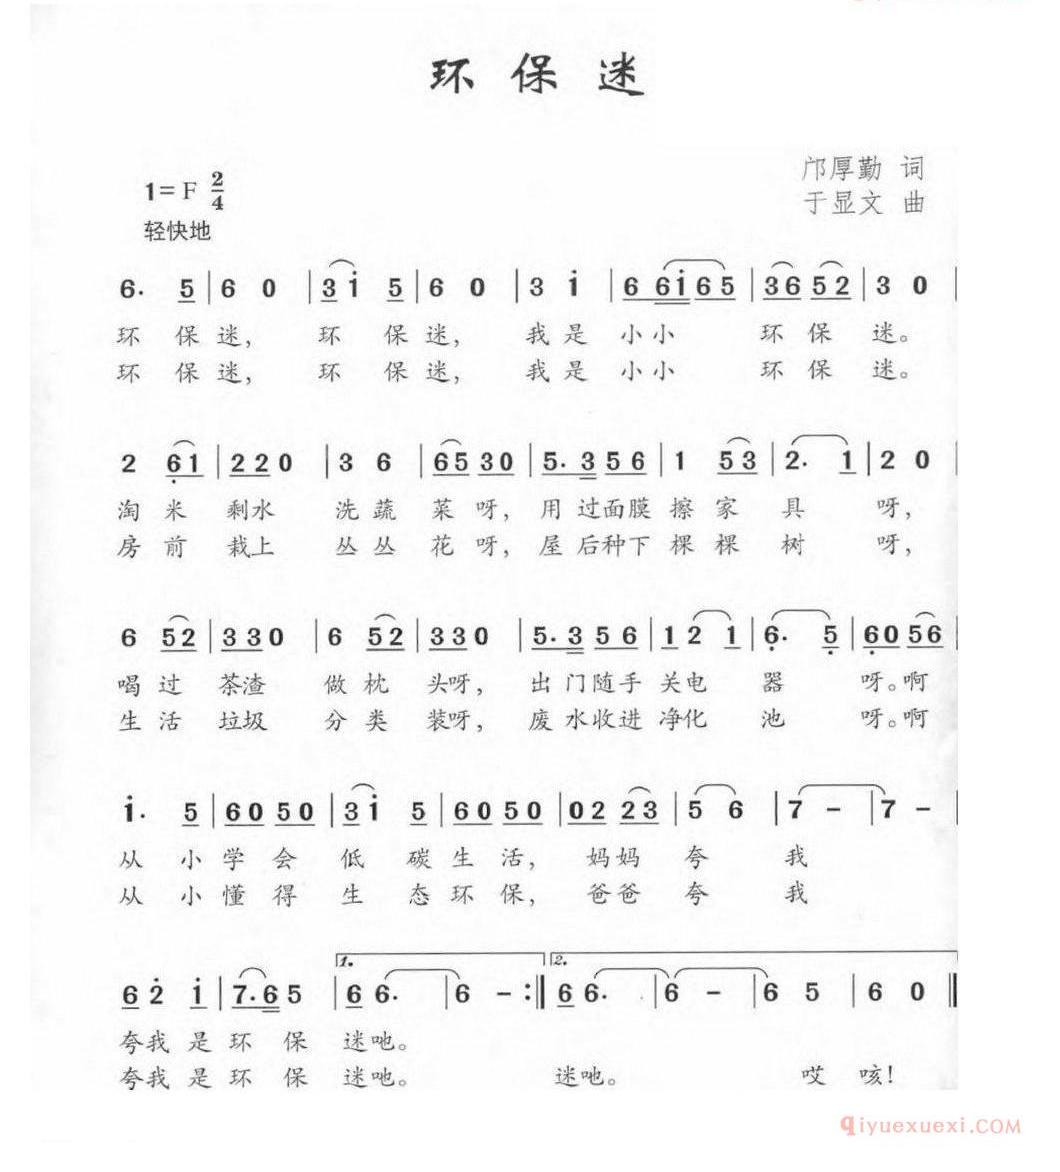 环保迷
邝厚勤 词
1=F 2/4
于显文 曲
轻快地
6. 5 | 6 0 | 3 i 5 | 6 0 | 3 i | 6 6i65 | 36 52 | 3 0 |
环 保 迷, 环 保 迷, 我 是 小 小 环 保 迷。
环 保 迷, 环 保 迷, 我 是 小 小 环 保 迷。
2 61 | 220 | 3 6 | 65 30 | 5. 3 5 6 | 1 53 | 2. 1 | 2 0 |
淘 米 剩水 洗 蔬 菜 呀, 用 过面膜 擦 家 具 呀,
房 前 栽上 丛 丛 花 呀, 屋 后种下 棵 棵 树 呀,
6 52 | 330 | 6 52 | 330 | 5. 3 5 6 | 1 2 1 | 6. 5 | 60 56 |
喝 过 茶渣 做 枕 头呀, 出 门随手 关电 器 呀。啊
生 活 垃圾 分 类 装呀, 废 水收进 净化 池 呀。啊
i. 5 | 60 50 | 3 i 5 | 60 50 | 02 23 | 5 6 | 7 - | 7 - |
从 小 学 会 低 碳 生 活, 妈妈 夸 我
从 小 懂 得 生 态 环 保, 爸爸 夸 我
1. 2.
6 2 i | 7. 6 5 | 6 6. | 6 - :‖ 6 6. | 6 - | 6 5 | 6 0 ‖
夸我 是 环 保 迷吔。
夸我 是 环 保 迷吔。 迷吔。 哎 咳!
qiyuexuexi.COM